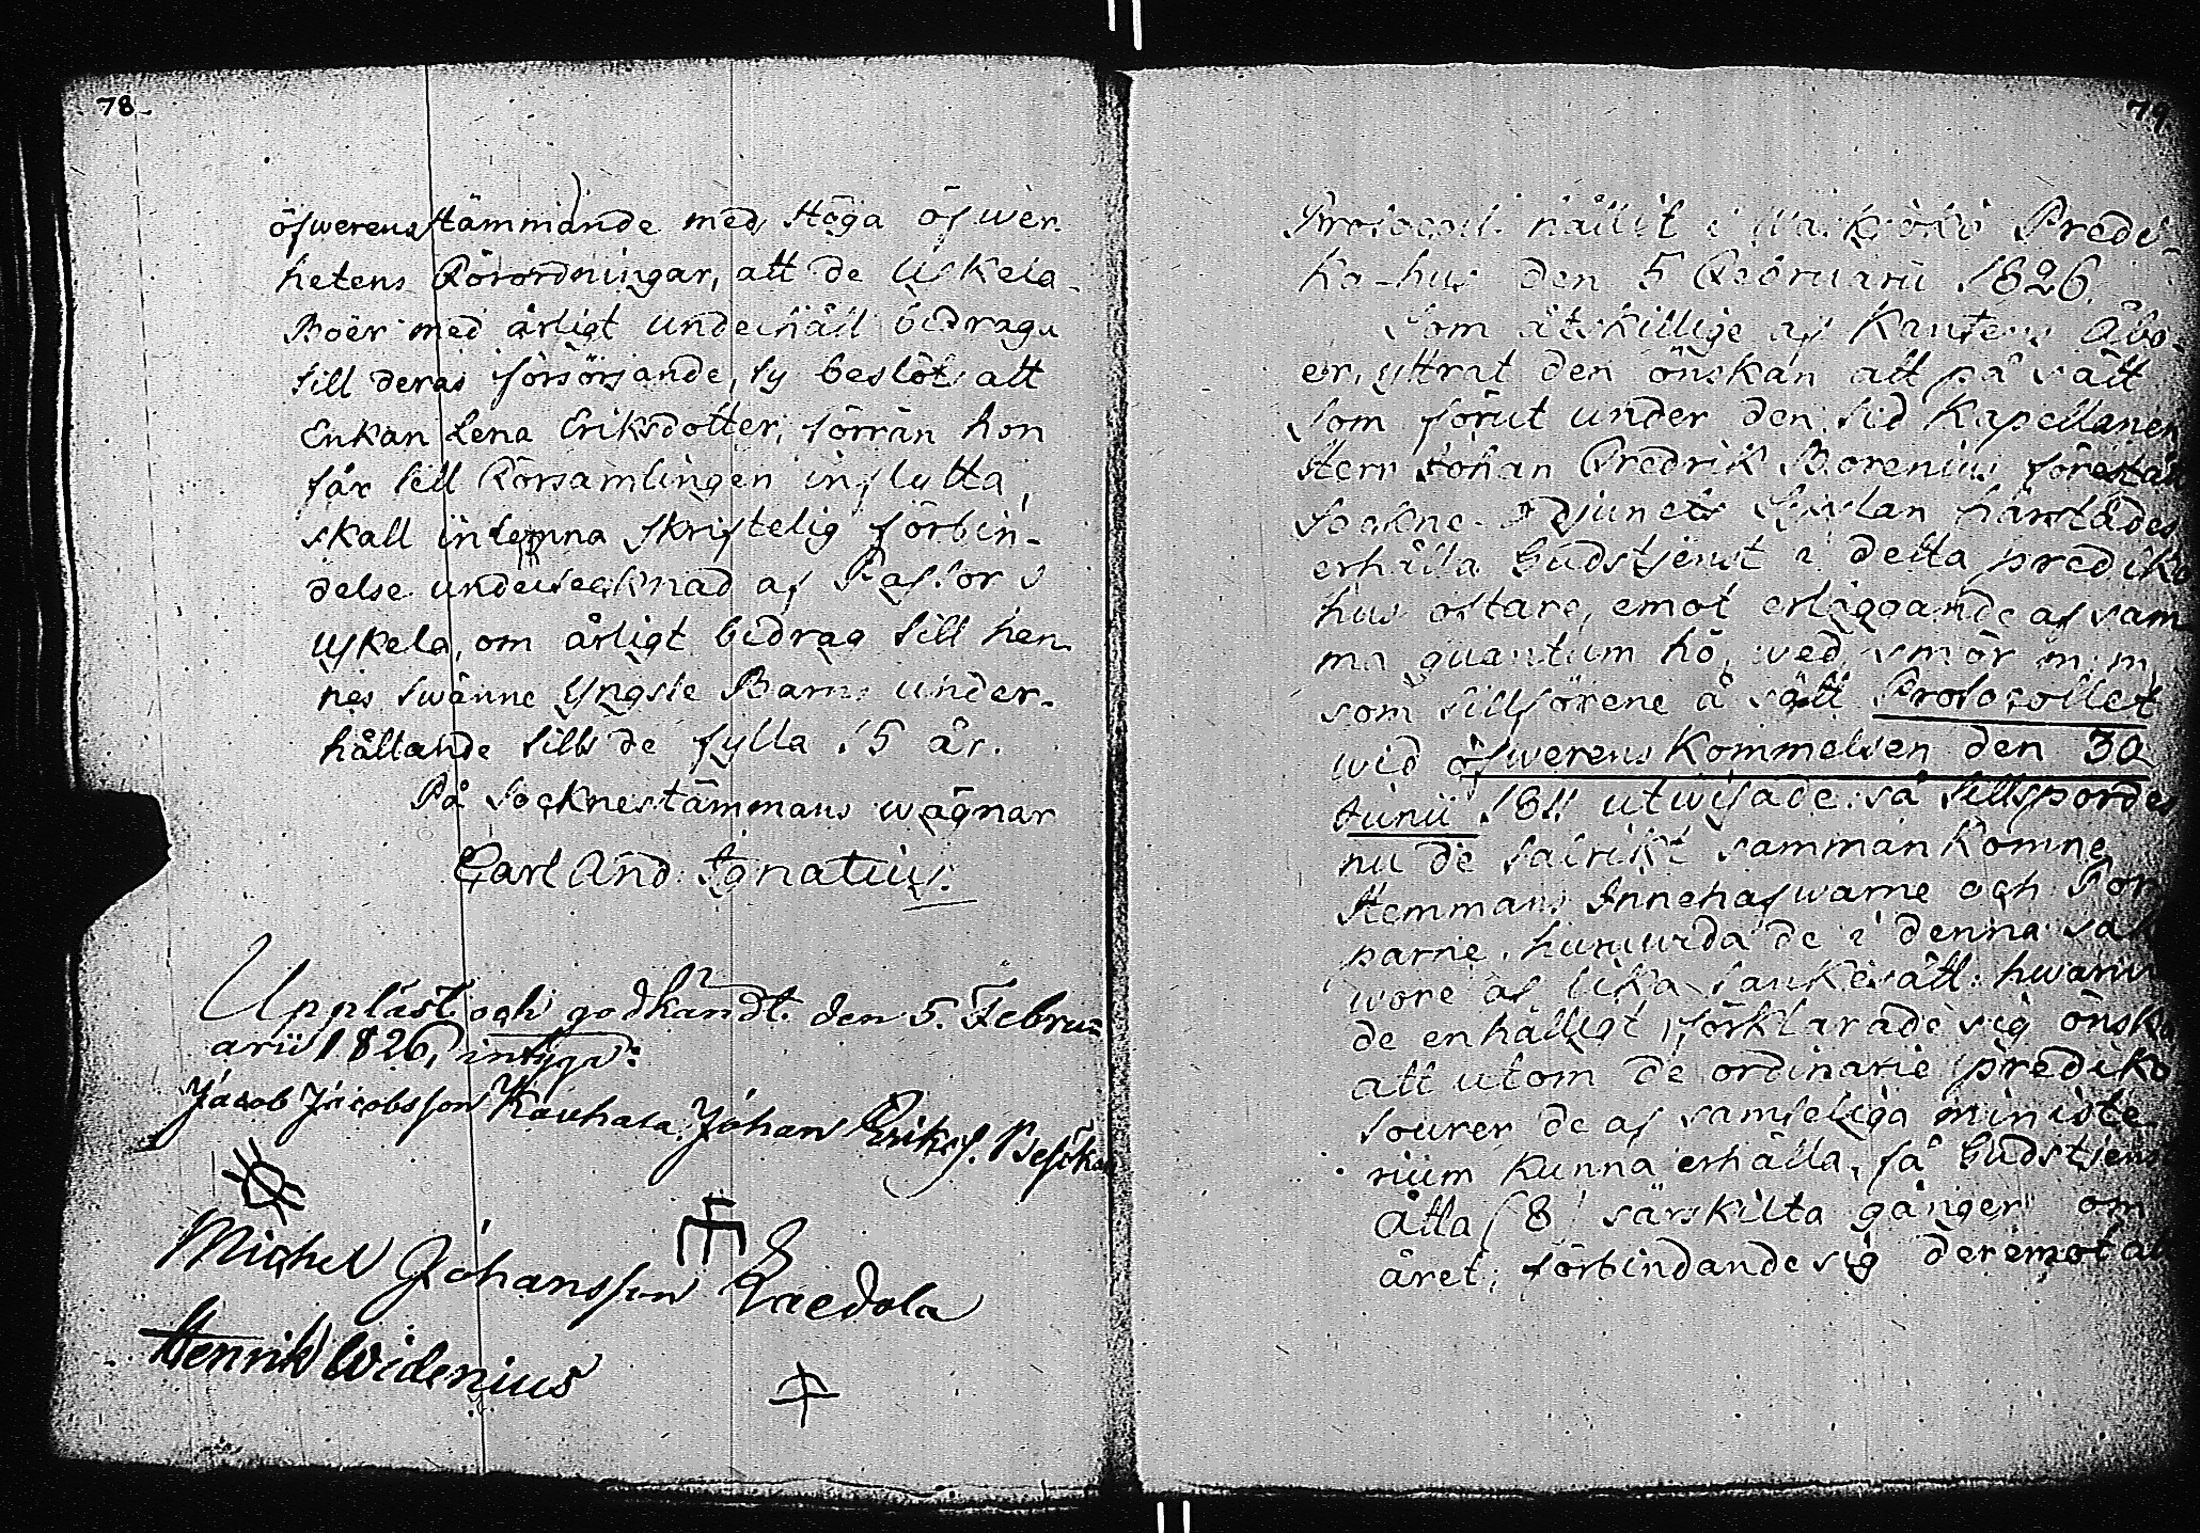 78.
öfwerensstämmande med Höga öfwer-
hetens Förordningar, att de Uskela
Boer med årligt underhåll bidraga
till deras försörjande, ty beslöts att
Enkan Lena Eriksdotter, förrän hon
får till Församlingen inflytta,
skall inlemna skriftelig förbin-
delse undertecknad af Pastor i
Uskela, om årligt bidrag till hen-
nes twänne Yngste Barns under-
hållande tills de fylla 15 år.
På Socknestämmans wägnar
Carl And: Ignatius.
Uppläst och godkändt den 5. Febru-
arii 1826, intyga:
Jacob Jacobsson Kauhala, Johan Eriks.
Michel Johansson
Henrik Widenius
79
Protocoll hållit i Predi-
ko-hus den 5 Februarii 1826.
Som åtskillige af Kantens Åbo-
er, yttrat den önskan att på sätt
som förut under den tid Kapellanen
Herr Johan Fredrik Borenius förestått
Sockne-Adjuncts härstädes
erhålla Gudstjenst i detta prediko
hus oftare, emot erläggande af sam
ma quantum hö, wed, smör m: m:
som tillförene å sätt Protocollet
wid öfwerenskommelsen den 30
Junii 1811 utwisade: så tillspordes
nu de talrikt sammankomne
Hemmans Innehafwarne och Tor
parne, huruwida de i denna sak
wore af lika tankesätt: hwarwid
de enhälligt förklarade sig önska
att utom de ordinarie prediko
tourer de af samteliga ministe
rium kunna erhålla, få Gudstjenst
Åtta (8) särskilta gånger om
året; förbindande sig deremot att